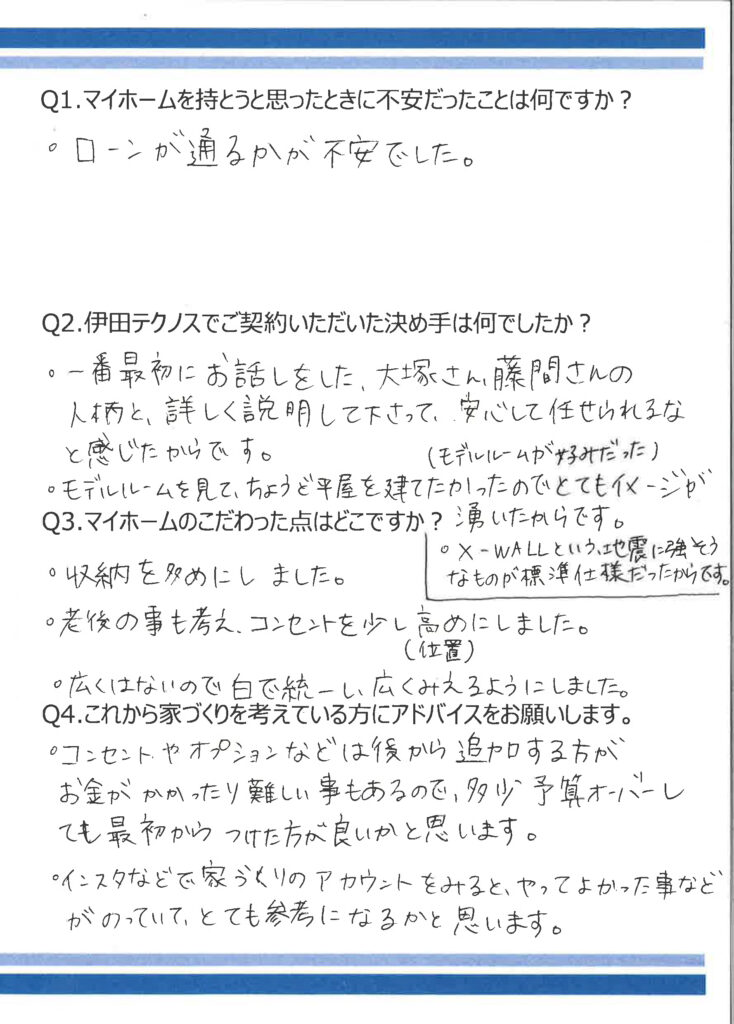 Q1.マイホームを持とうと思ったときに不安だったことは何ですか？
。ローンが通るかが不安でした。
Q2.伊田テクノスでご契約いただいた決め手は何でしたか？
。一番最初にお話しをした、大塚さん、藤間さんの
人柄と、詳しく説明して下さって、安心して任せられるな
と感じたからです。
(モデルルームが好みだった)
。モデルルームを見て、ちょうど平屋を建てたかったのでとてもイメージが
湧いたからです。
。X-WALLという、地震に強そう
なものが標準仕様だったからです。
Q3.マイホームのこだわった点はどこですか？
。収納を多めにしました。
。老後の事も考え、コンセントを少し高めにしました。
(位置)
。広くはないので白で統一し、広くみえるようにしました。
Q4.これから家づくりを考えている方にアドバイスをお願いします。
。コンセントやオプションなどは後から追加する方が
お金がかかったり難しい事もあるので、多少予算オーバーし
ても最初からつけた方が良いかと思います。
。インスタなどで家づくりのアカウントをみると、やってよかった事など
がのっていて、とても参考になるかと思います。